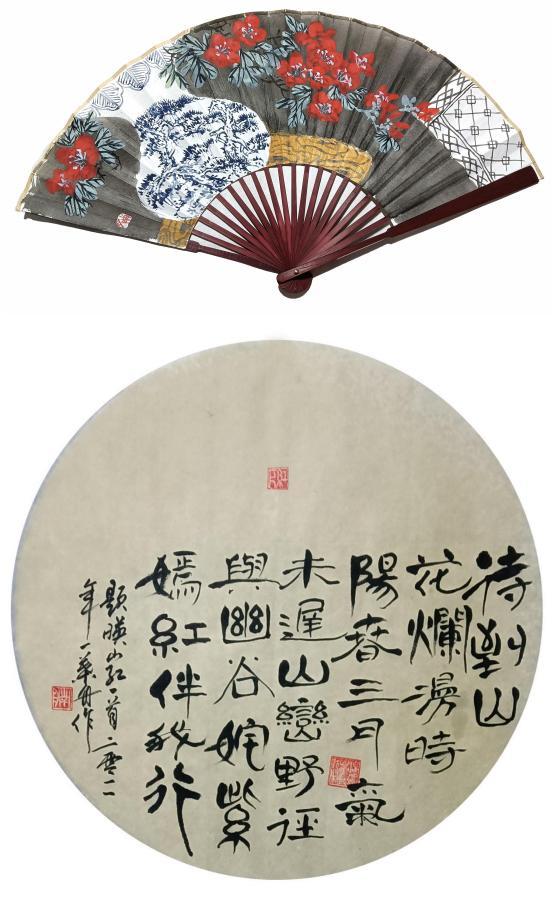 待到山
花爛漫時
陽春三月氣
未遲山巒野徑
與幽谷姹紫
嫣紅伴我行
題暎山紅一首二零一
年一葉舟作